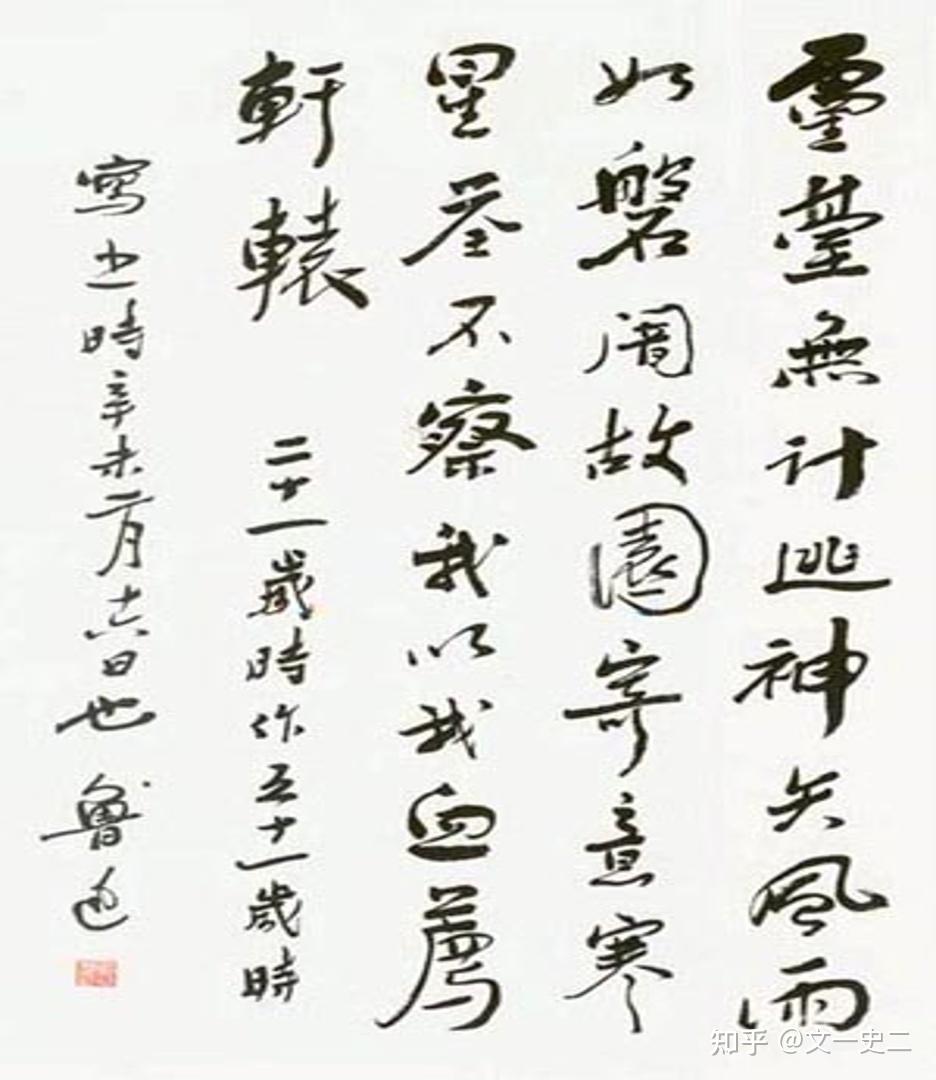 靈臺無計逃神矢風雨
如磐闇故園寄意寒
星荃不察我以我血薦
軒轅 二十一歲時作五十一歲時
寫之時辛未二月十六日也 魯迅
知乎 @文一史二